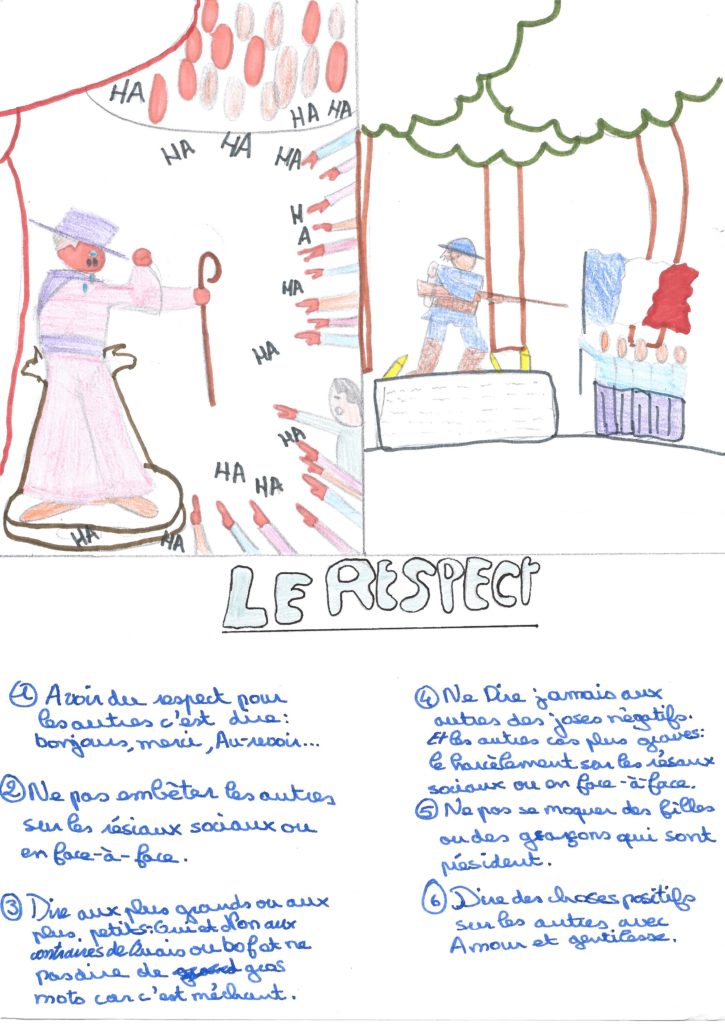 HA
HA
HA
HA
HA
HA
H
A
HA
HA
HA
HA
HA
HA
HA
LE RESPECT
① Avoir du respect pour
les autres c'est dire:
bonjours, merci, Au-revoir...
② Ne pas embêter les autres
sur les résiaux sociaux ou
en face-à-face.
③ Dire aux plus grands ou aux
plus petits: Oui et Non aux
contraires de Ouais ou bof et ne
pas dire de gros
mots car c'est méchant.
④ Ne Dire jamais aux
autres des joses négatifs.
Et les autres cas plus graves:
le harcèlement sur les résaux
sociaux ou en face-à-face.
⑤ Ne pas se moquer des filles
ou des garçons qui sont
président.
⑥ Dire des choses positifs
sur les autres avec
Amour et gentilesse.